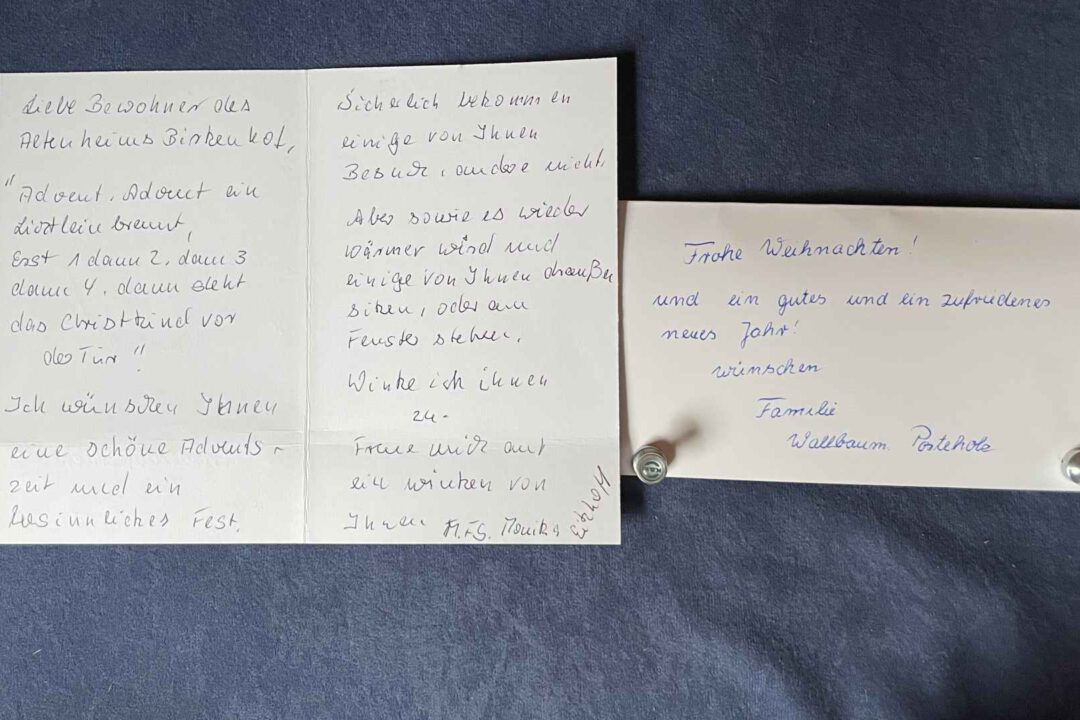 Liebe Bewohner des
Altenheims Birkenhof,
"Advent, Advent ein
Lichtlein brennt,
Erst 1 dann 2, dann 3
dann 4, dann steht
das Christkind vor
der Tür"
Ich wünschen Ihnen
eine schöne Advents-
zeit und ein
besinnliches Fest.
Sicherlich bekommen
einige von Ihnen
Besuch, andere nicht.
Aber sowie es wieder
wärmer wird und
einige von Ihnen draußen
sitzen, oder am
Fenster stehen.
Winke ich ihnen
zu.
Freue mich auf
ein winken von
Ihnen. M.f.G. Monika
Frohe Weihnachten!
und ein gutes und ein zufriedenes
neues Jahr!
wünschen
Familie
Wallbaum Posteholz